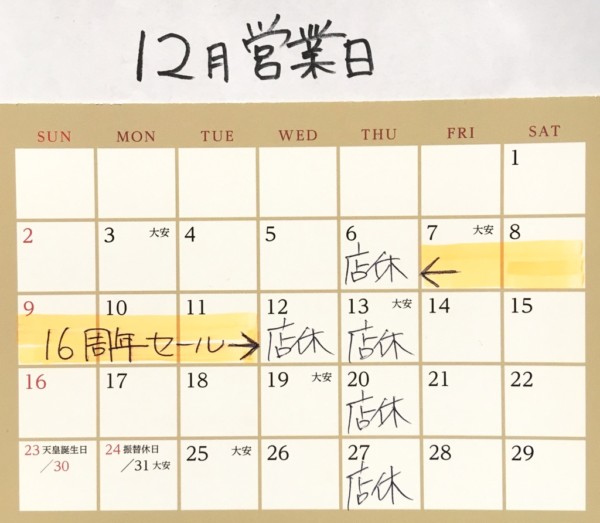 12月営業日
SUN MON TUE WED THU FRI SAT
1
2 3 大安 4 5 6 7 大安 8
店休 ←
9 10 11 12 13 大安 14 15
16周年セール→ 店休 店休
16 17 18 19 大安 20 21 22
店休
23 天皇誕生日 24 振替休日 25 大安 26 27 28 29
/30 /31 大安 店休